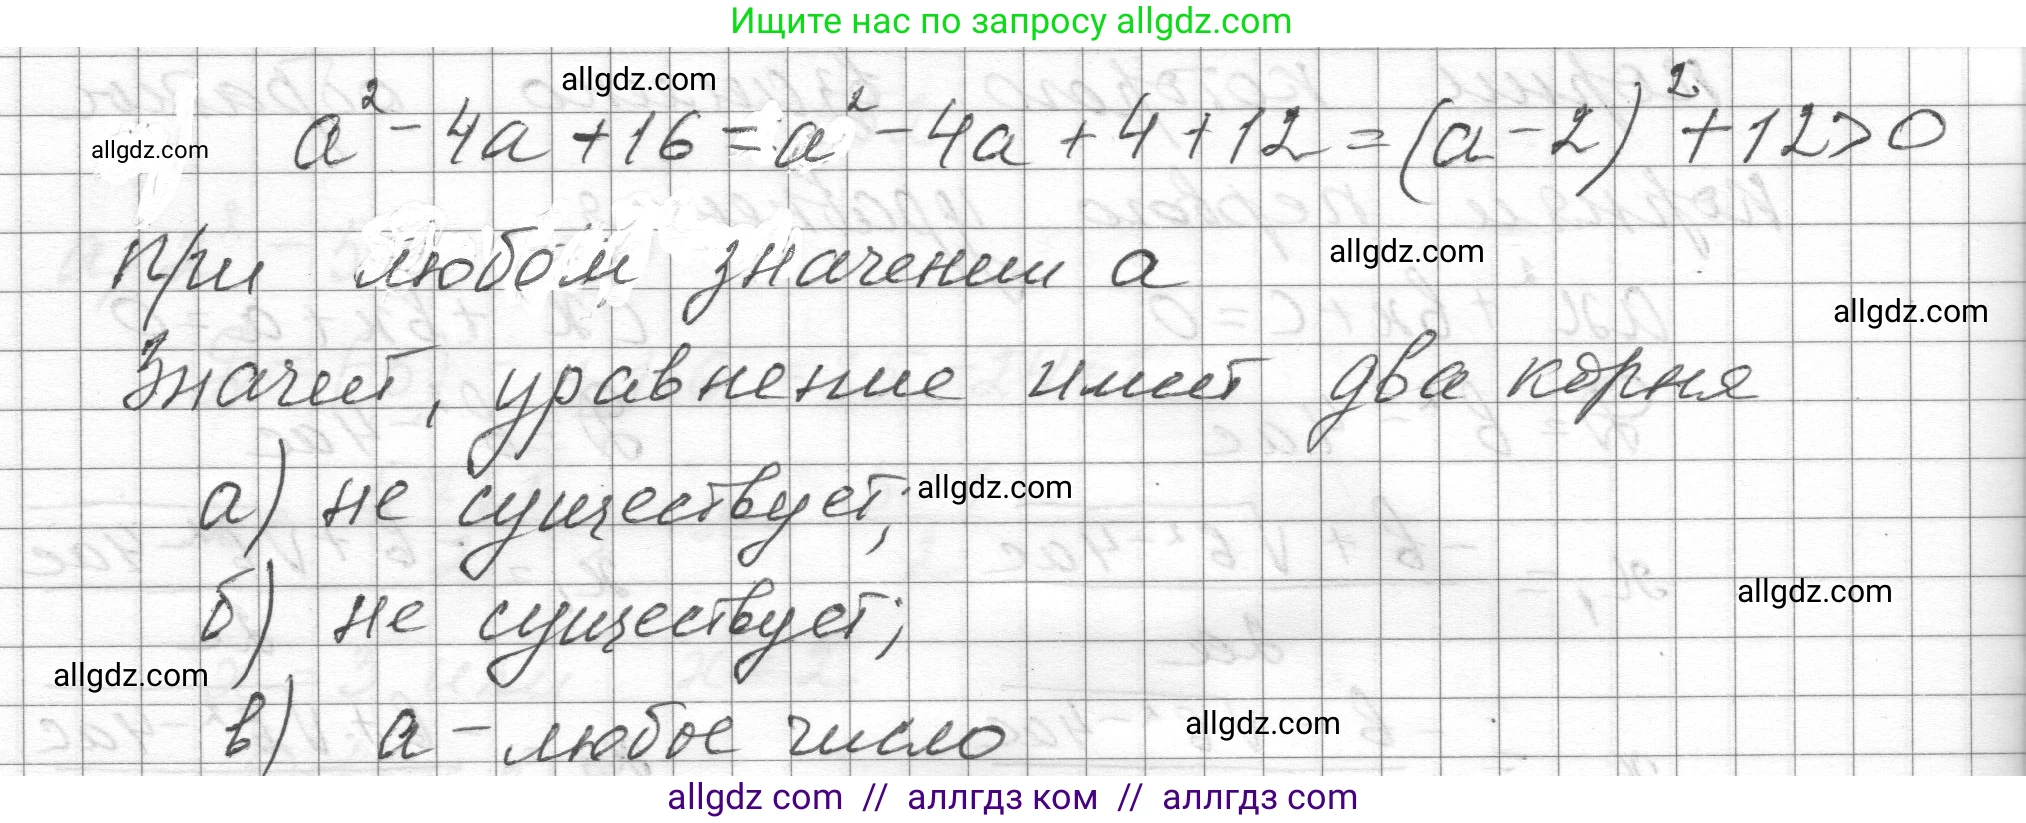 Ищите нас по запросу allgdz.com
allgdz.com
allgdz.com
a² - 4a + 16 = a² - 4a + 4 + 12 = (a - 2)² + 12 > 0
при любом значении a
allgdz.com
allgdz.com
Значит, уравнение имеет два корня
а) не существует;
allgdz.com
б) не существует;
allgdz.com
allgdz.com
в) a - любое число
allgdz.com
allgdz com // аллгдз ком // аллгдз com